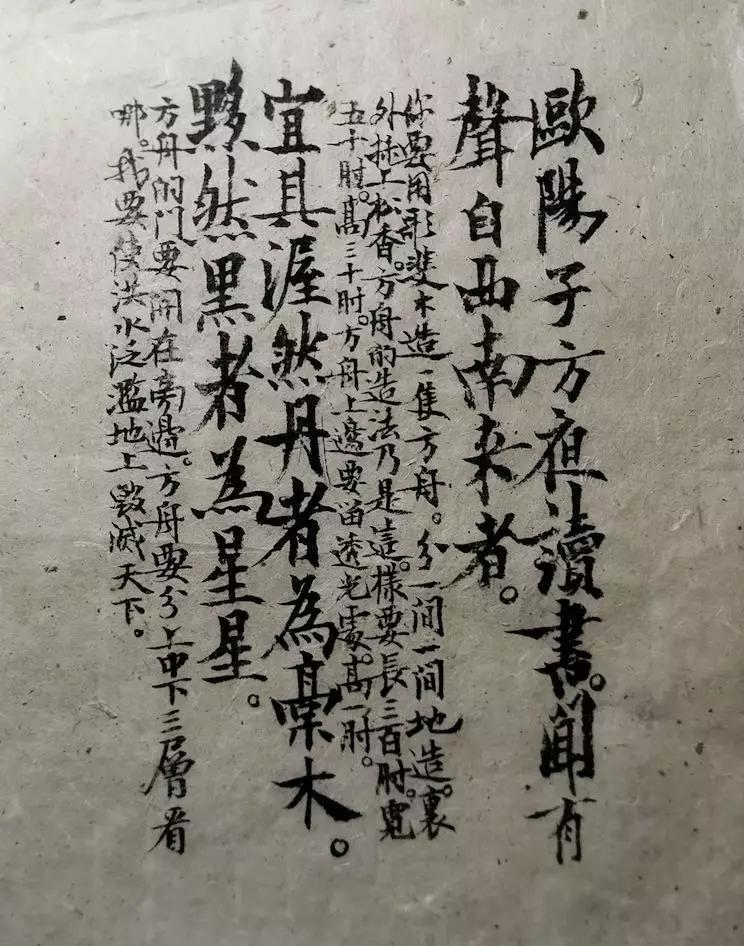 歐陽子方夜讀書。聞有
聲自西南来者。
你要用歌斐木造一隻方舟。分一間一間地造。裏
外抹上松香。方舟的造法乃是這。樣要長三百肘。寬
五十肘。高三十肘。方舟上邊要留透光處。高一肘。
宜其渥然丹者為槀木。
黟然黑者為星星。
方舟的門要開在旁邊。方舟要分上中下三層看
哪。我要使洪水泛濫地上毀滅天下。